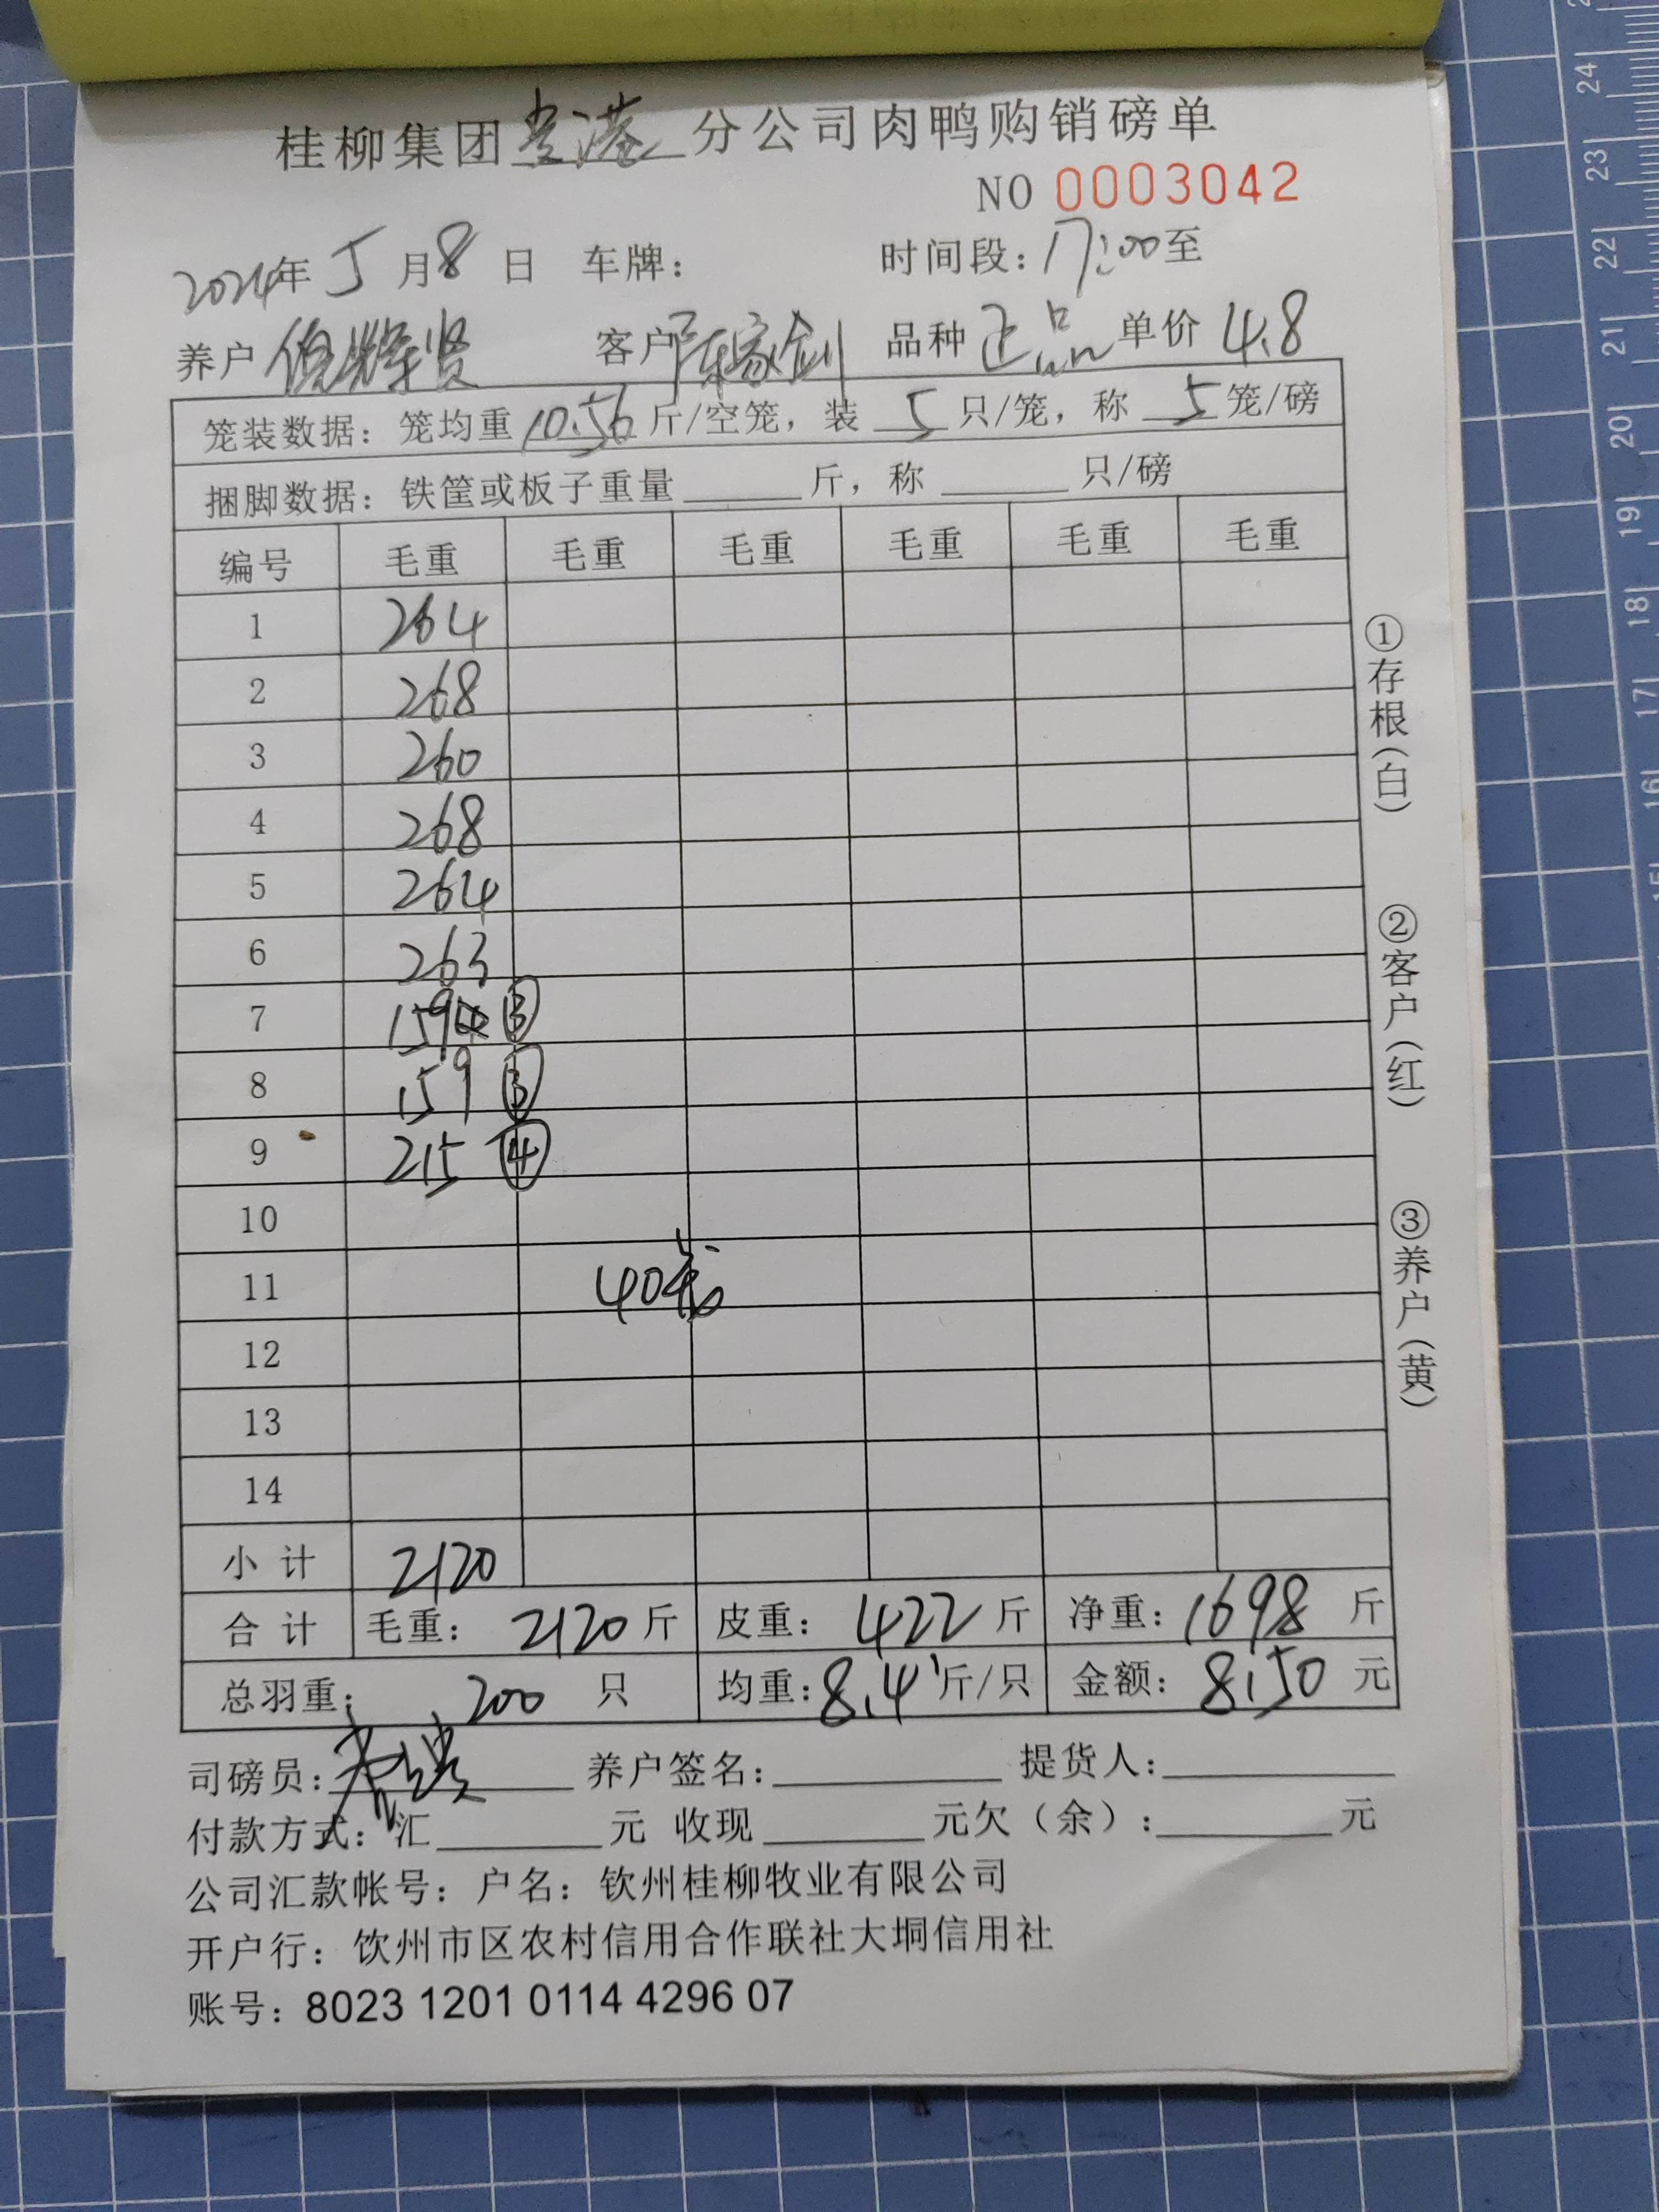 桂柳集团贵港分公司肉鸭购销磅单
NO 0003042
2024年5月8日 车牌: 时间段:17:00至
养户 辉贤 客户 陈家剑 品种 正品 单价 4.8
笼装数据: 笼均重 10.56 斤/空笼, 装 5 只/笼, 称 5 笼/磅
捆脚数据: 铁筐或板子重量______斤, 称______只/磅
编号 毛重 毛重 毛重 毛重 毛重 毛重
1 264
2 268
3 260
4 268
5 264
6 263
7 159 ③
8 159 ③
9 215 ④
10
11 40笼
12
13
14
小计 2120
合计 毛重: 2120斤 皮重: 422斤 净重: 1698斤
总羽重: 200 只 均重: 8.4斤/只 金额: 8150元
司磅员: 养户签名:______ 提货人:______
付款方式: 汇______元 收现______元欠(余):______元
公司汇款帐号: 户名: 钦州桂柳牧业有限公司
开户行: 饮州市区农村信用合作联社大垌信用社
账号: 8023 1201 0114 4296 07
①存根(白)
②客户(红)
③养户(黄)
24
23
22
21
20
19
18
17
16
15